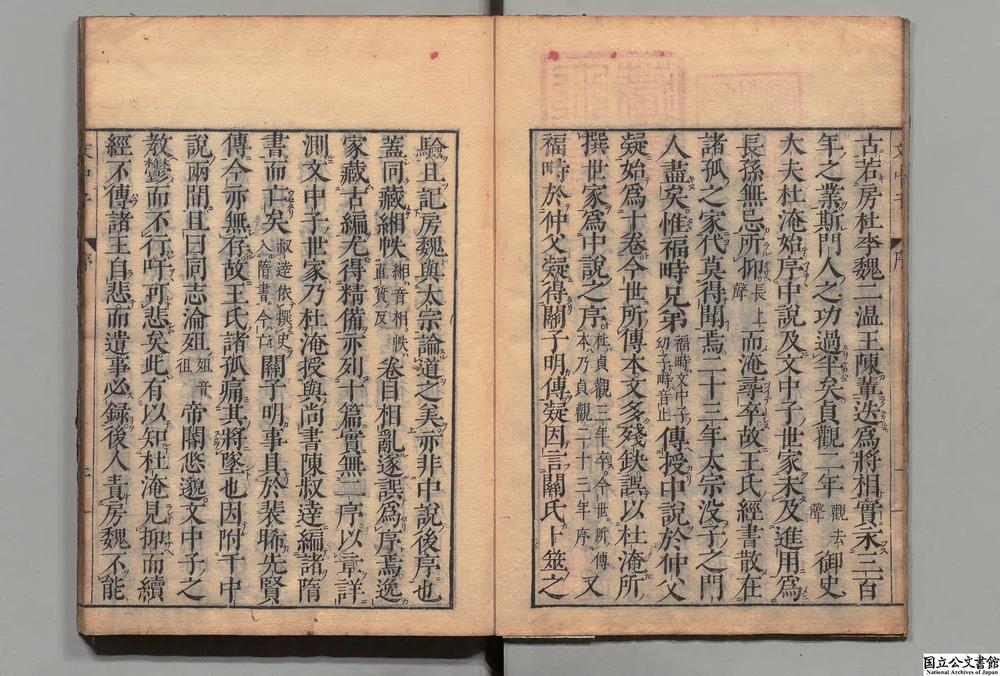 古若房杜李魏二溫王陳輩迭爲將相實永三百
年之業斯門人之功過半矣貞觀二年觀去聲御史
大夫杜淹始序中說及文中子世家未及進用爲
長孫無忌所抑長上聲而淹尋卒故王氏經書散在
諸孤之家代莫得聞焉二十三年太宗沒子之門
人盡矣惟福畤兄弟福畤文中子幼子畤音止傳授中說於仲父
凝始爲十卷今世所傳本文多殘缺誤以杜淹所
撰世家爲中說之序杜貞觀三年卒今世所傳本乃貞觀二十三年序又
福畤於仲父凝得關子明傳凝因言關氏卜筮之
驗且記房魏與太宗論道之美亦非中說後序也
蓋同藏緗帙緗音相帙直質反卷目相亂遂誤爲序焉逸
家藏古編尤得精備亦列十篇實無二序以章詳
測文中子世家乃杜淹授與尚書陳叔達編諸隋
書而亡矣叔達依撰史入隋書今亡關子明事具於裴晞先賢
傳今亦無存故王氏諸孤痛其將墜也因附于中
說兩間且曰同志淪殂殂音徂帝閽悠邈文中子之
教鬱而不行吁可悲矣此有以知杜淹見抑而續
經不傳諸王自悲而遺事必錄後人責房魏不能
国立公文書館
National Archives of Japan